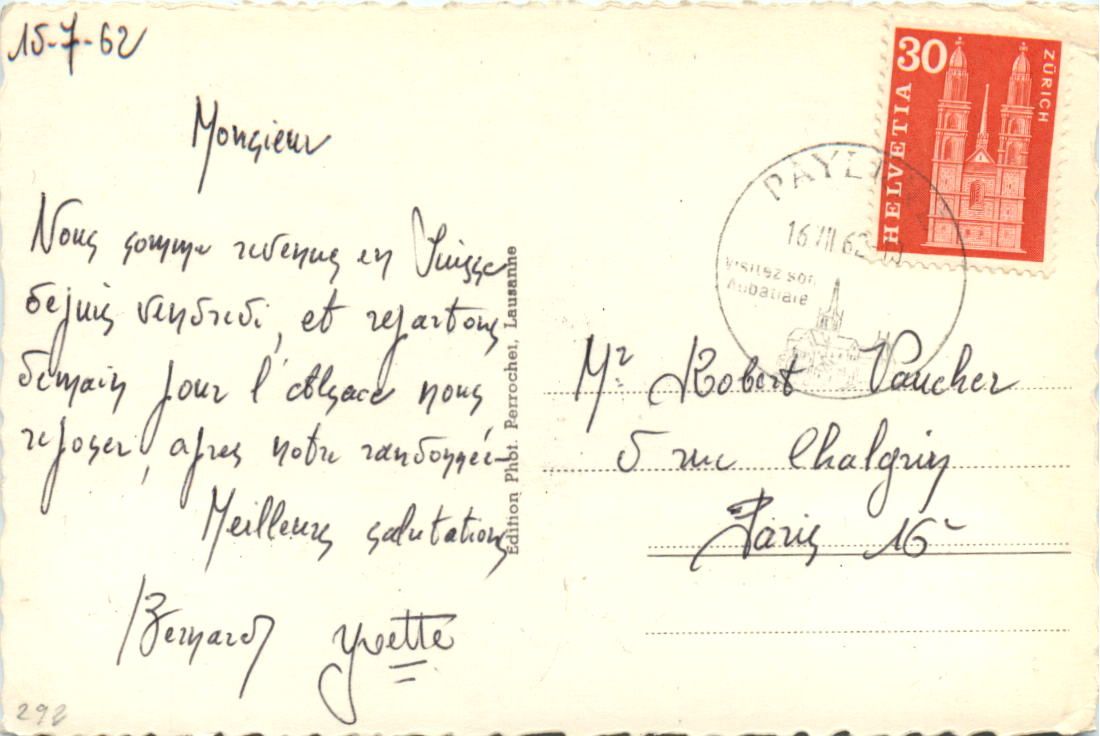 15-7-62
Monsieur
Nous somme revenus en Suisse
depuis vendredi, et repartons
demain pour l'Alsace nous
reposer, apres notre randonnée
Meilleurs salutations
Bernard Yvette
292
Edition Phot. Perrochet, Lausanne
30
HELVETIA
ZÜRICH
16 VII 62
Visitez son
Abbatiale
Mr Robert Vaucher
5 rue Chalgrin
Paris 16e